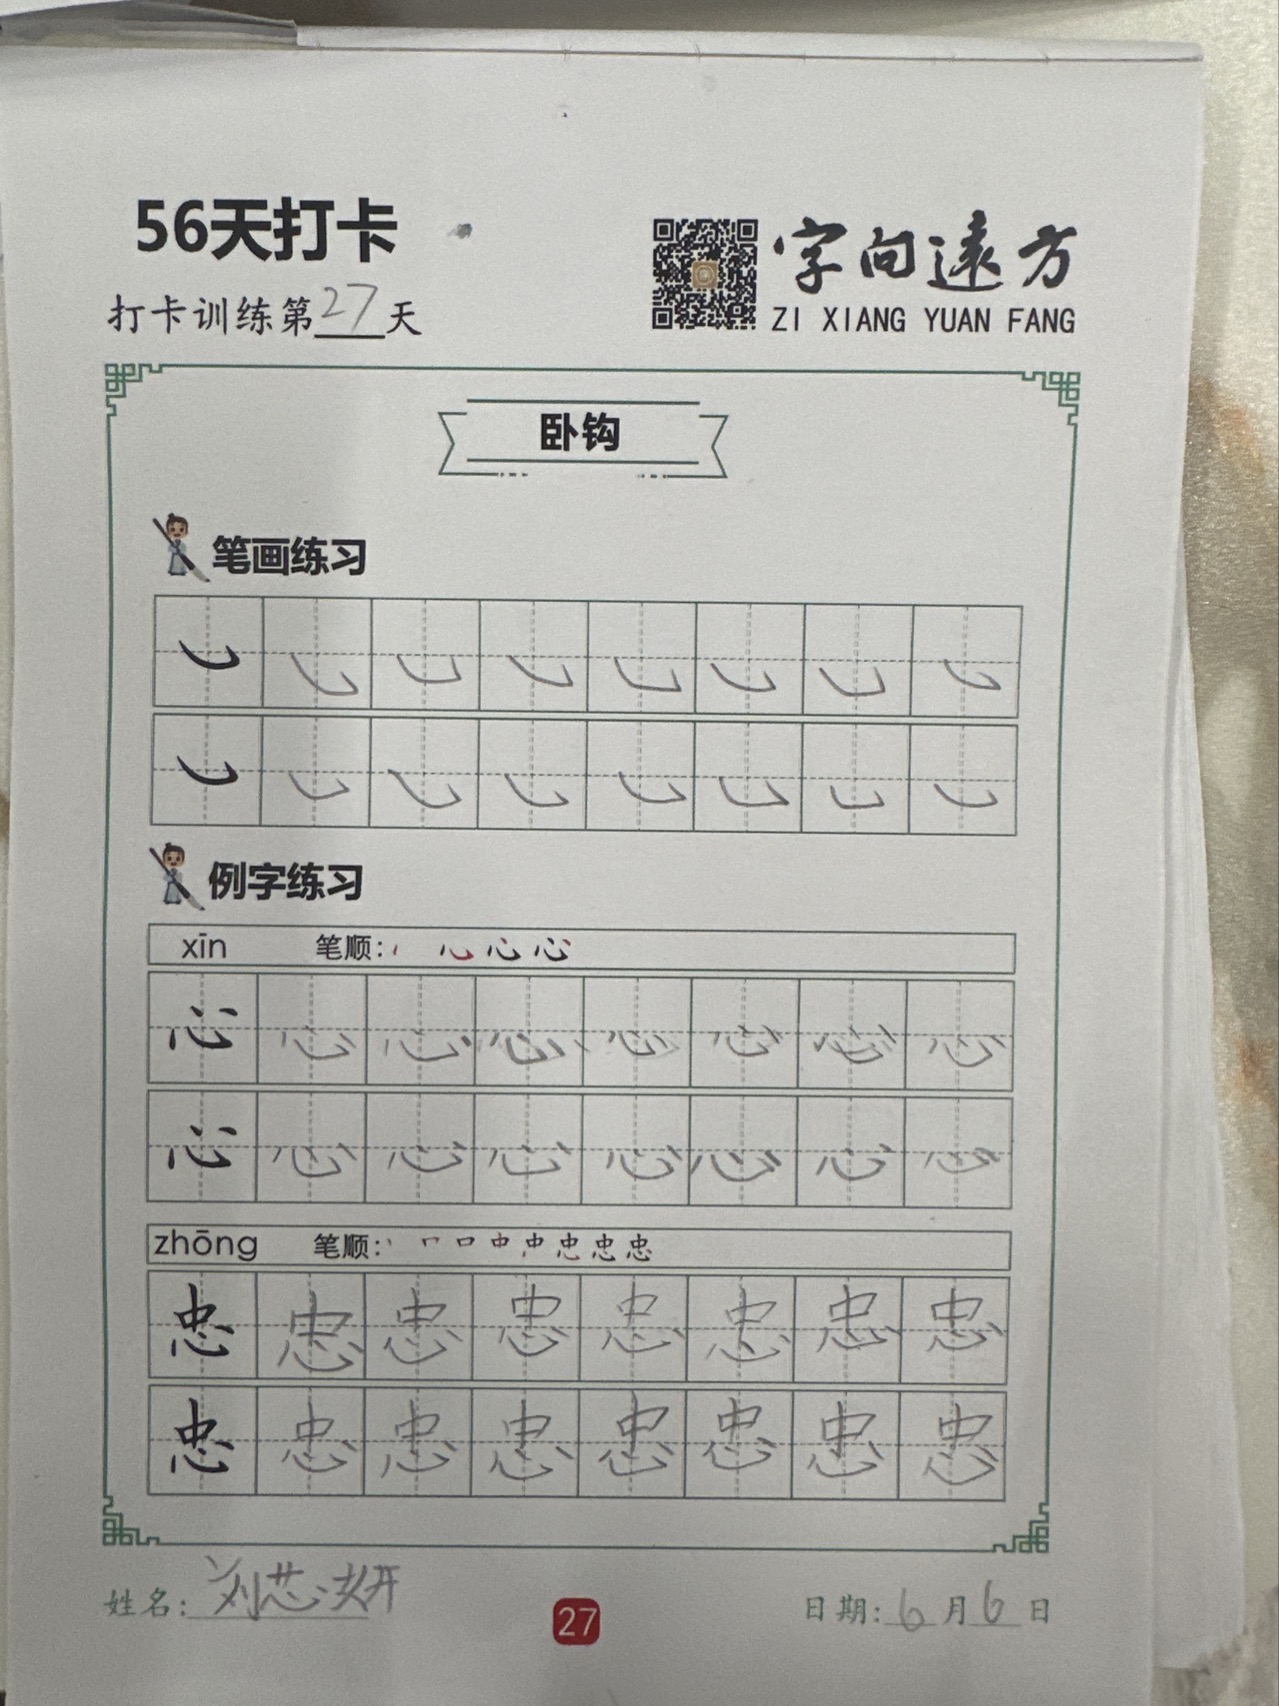 56天打卡
打卡训练第27天
字向遠方
ZI XIANG YUAN FANG
卧钩
笔画练习
例字练习
xīn 笔顺: 心 心 心
心 心 心 心 心 心 心 心
心 心 心 心 心 心 心 心
zhōng 笔顺: 口 中 忠 忠 忠
忠 忠 忠 忠 忠 忠 忠 忠
忠 忠 忠 忠 忠 忠 忠 忠
姓名: 刘芯妍
27
日期: 6月6日